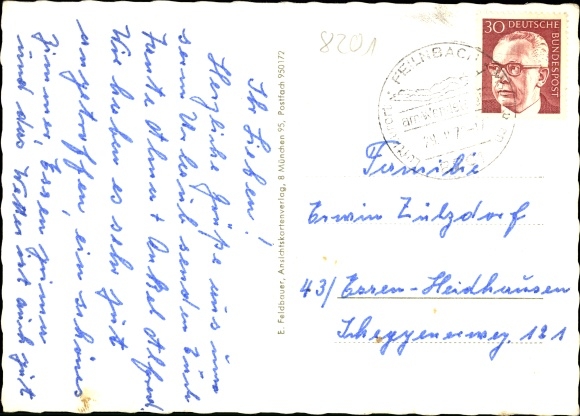 Ihr Lieben!
Herzliche Grüße aus un
serm Urlaub senden Euch
Tante Änne + Onkel Alfred
Wir haben es sehr gut
angetroffen, ein schönes
Zimmer, Essen prima
und das Wetter ist auch gut
E. Feldbauer, Ansichtskartenverlag, 8 München 95, Postfach 950172
8201
FEILNBACH
30 DEUTSCHE BUNDESPOST
Familie
Erwin Zülzdorf
43/ Essen-Heidhausen
Scheppenerweg. 121